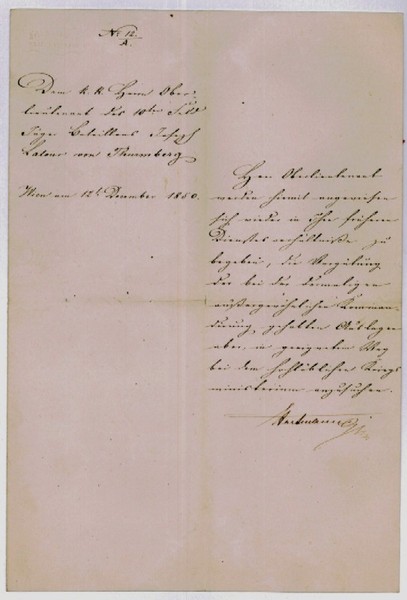 Nr 12
A.
Dem k. k. Herrn Ober-
lieutenant des 10ten Feld
Jäger Bataillons Joseph
Latour von Thurmberg
Wien am 12t December 1850.
Herr Oberlieutenant
werden hiemit angewiesen
sich wieder in Ihre früheren
Dienstesverhältniße zu
begeben, die Vergütung
der bei der dermaligen
außergewöhnlichen Komman-
dirung gehabten Auslagen
aber in geeigneten Weg
bei dem hochlöblichen Kriegs
ministerium anzusuchen.
Hartmann